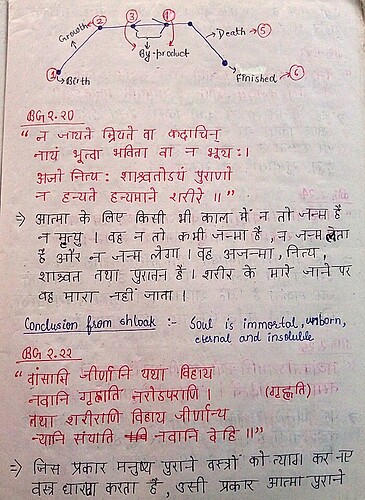 Growth ②
③ ④
Death → ⑤
By-product
① Birth
Finished → ⑥
BG 2.20
“ न जायते म्रियते वा कदाचिन्
नायं भूत्वा भविता वा न भूयः ।
अजो नित्यः शाश्वतोऽयं पुराणो
न हन्यते हन्यमाने शरीरे ॥”
⇒ आत्मा के लिए किसी भी काल में न तो जन्म है
न मृत्यु । वह न तो कभी जन्मा है , न जन्म लेता
है और न जन्म लेगा । वह अजन्मा , नित्य ,
शाश्वत तथा पुरातन है । शरीर के मारे जाने पर
वह मारा नही जाता ।
Conclusion from shloak :- Soul is immortal, unborn,
eternal and insoluble
BG 2.22
“ वांसासि जीर्णानि यथा विहाय
नवानि गृह्णाति नरोडपराणि । (गृह्णति)
तथा शरीराणि विहाय जीर्णान्य
न्यानि संयाति नवानि देहि ॥”
⇒ जिस प्रकार मनुष्य पुराने वस्त्रों को त्याग कर नए
वस्त्र धारण करता है , उसी प्रकार आत्मा पुराने